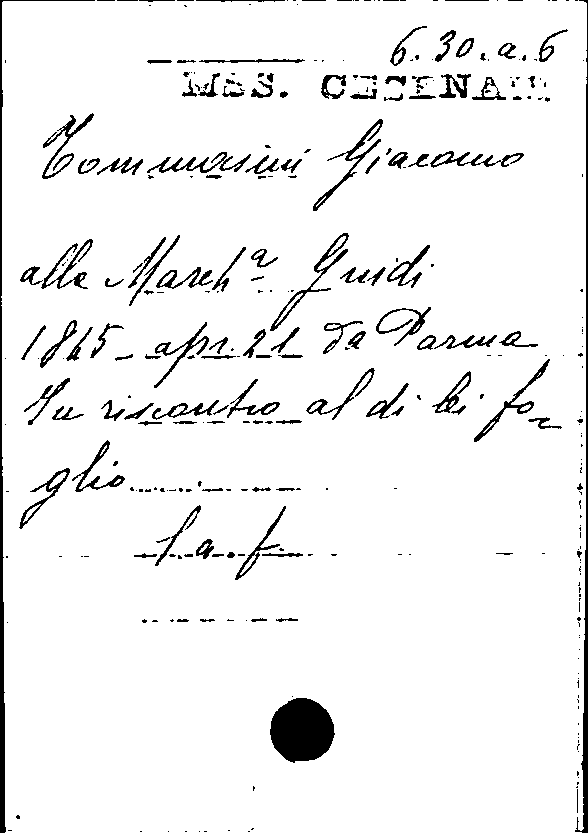 6.30.a.6
MSS. CESENATI
Tommasini Giacomo
alla March.ª Guidi
1845 - apr. 21 da Parma
In riscontro al di lei fo-
glio
l. a. f.